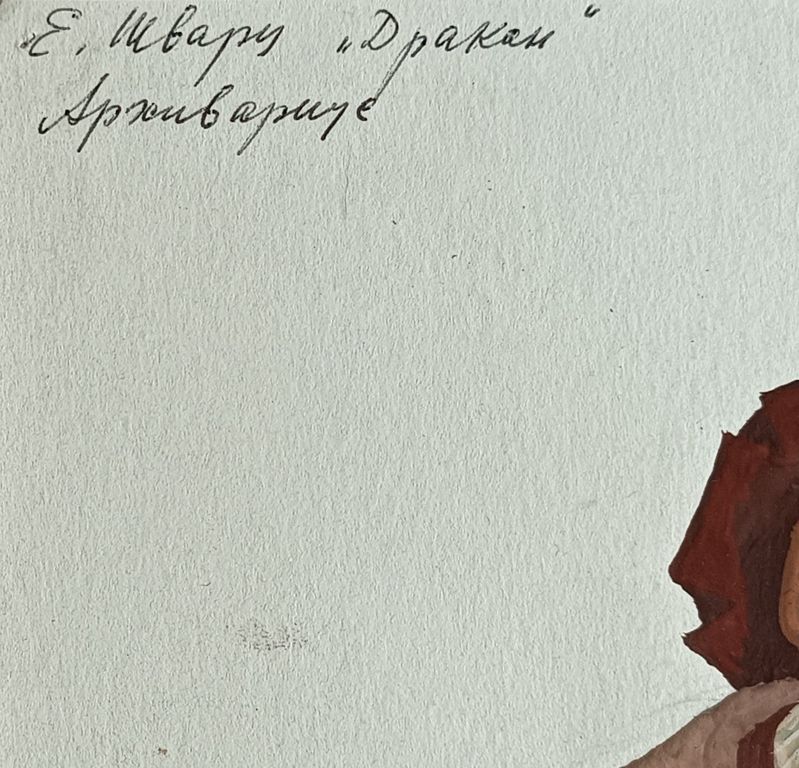 Е. Шварц „Дракон“
Архивариус